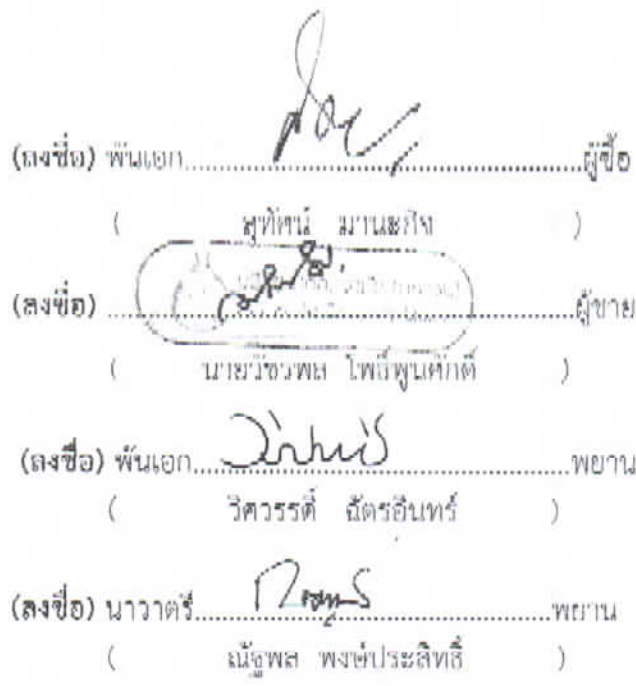 (ลงชื่อ) พันเอก..............................ผู้ซื้อ
( สุทัศน์ มานะกิจ )
(ลงชื่อ) ..............................ผู้ขาย
( นายวัชรพล โพธิ์พูนศักดิ์ )
(ลงชื่อ) พันเอก..............................พยาน
( วิศวรรดิ์ ฉัตรอินทร์ )
(ลงชื่อ) นาวาตรี..............................พยาน
( ณัฐพล พงษ์ประสิทธิ์ )